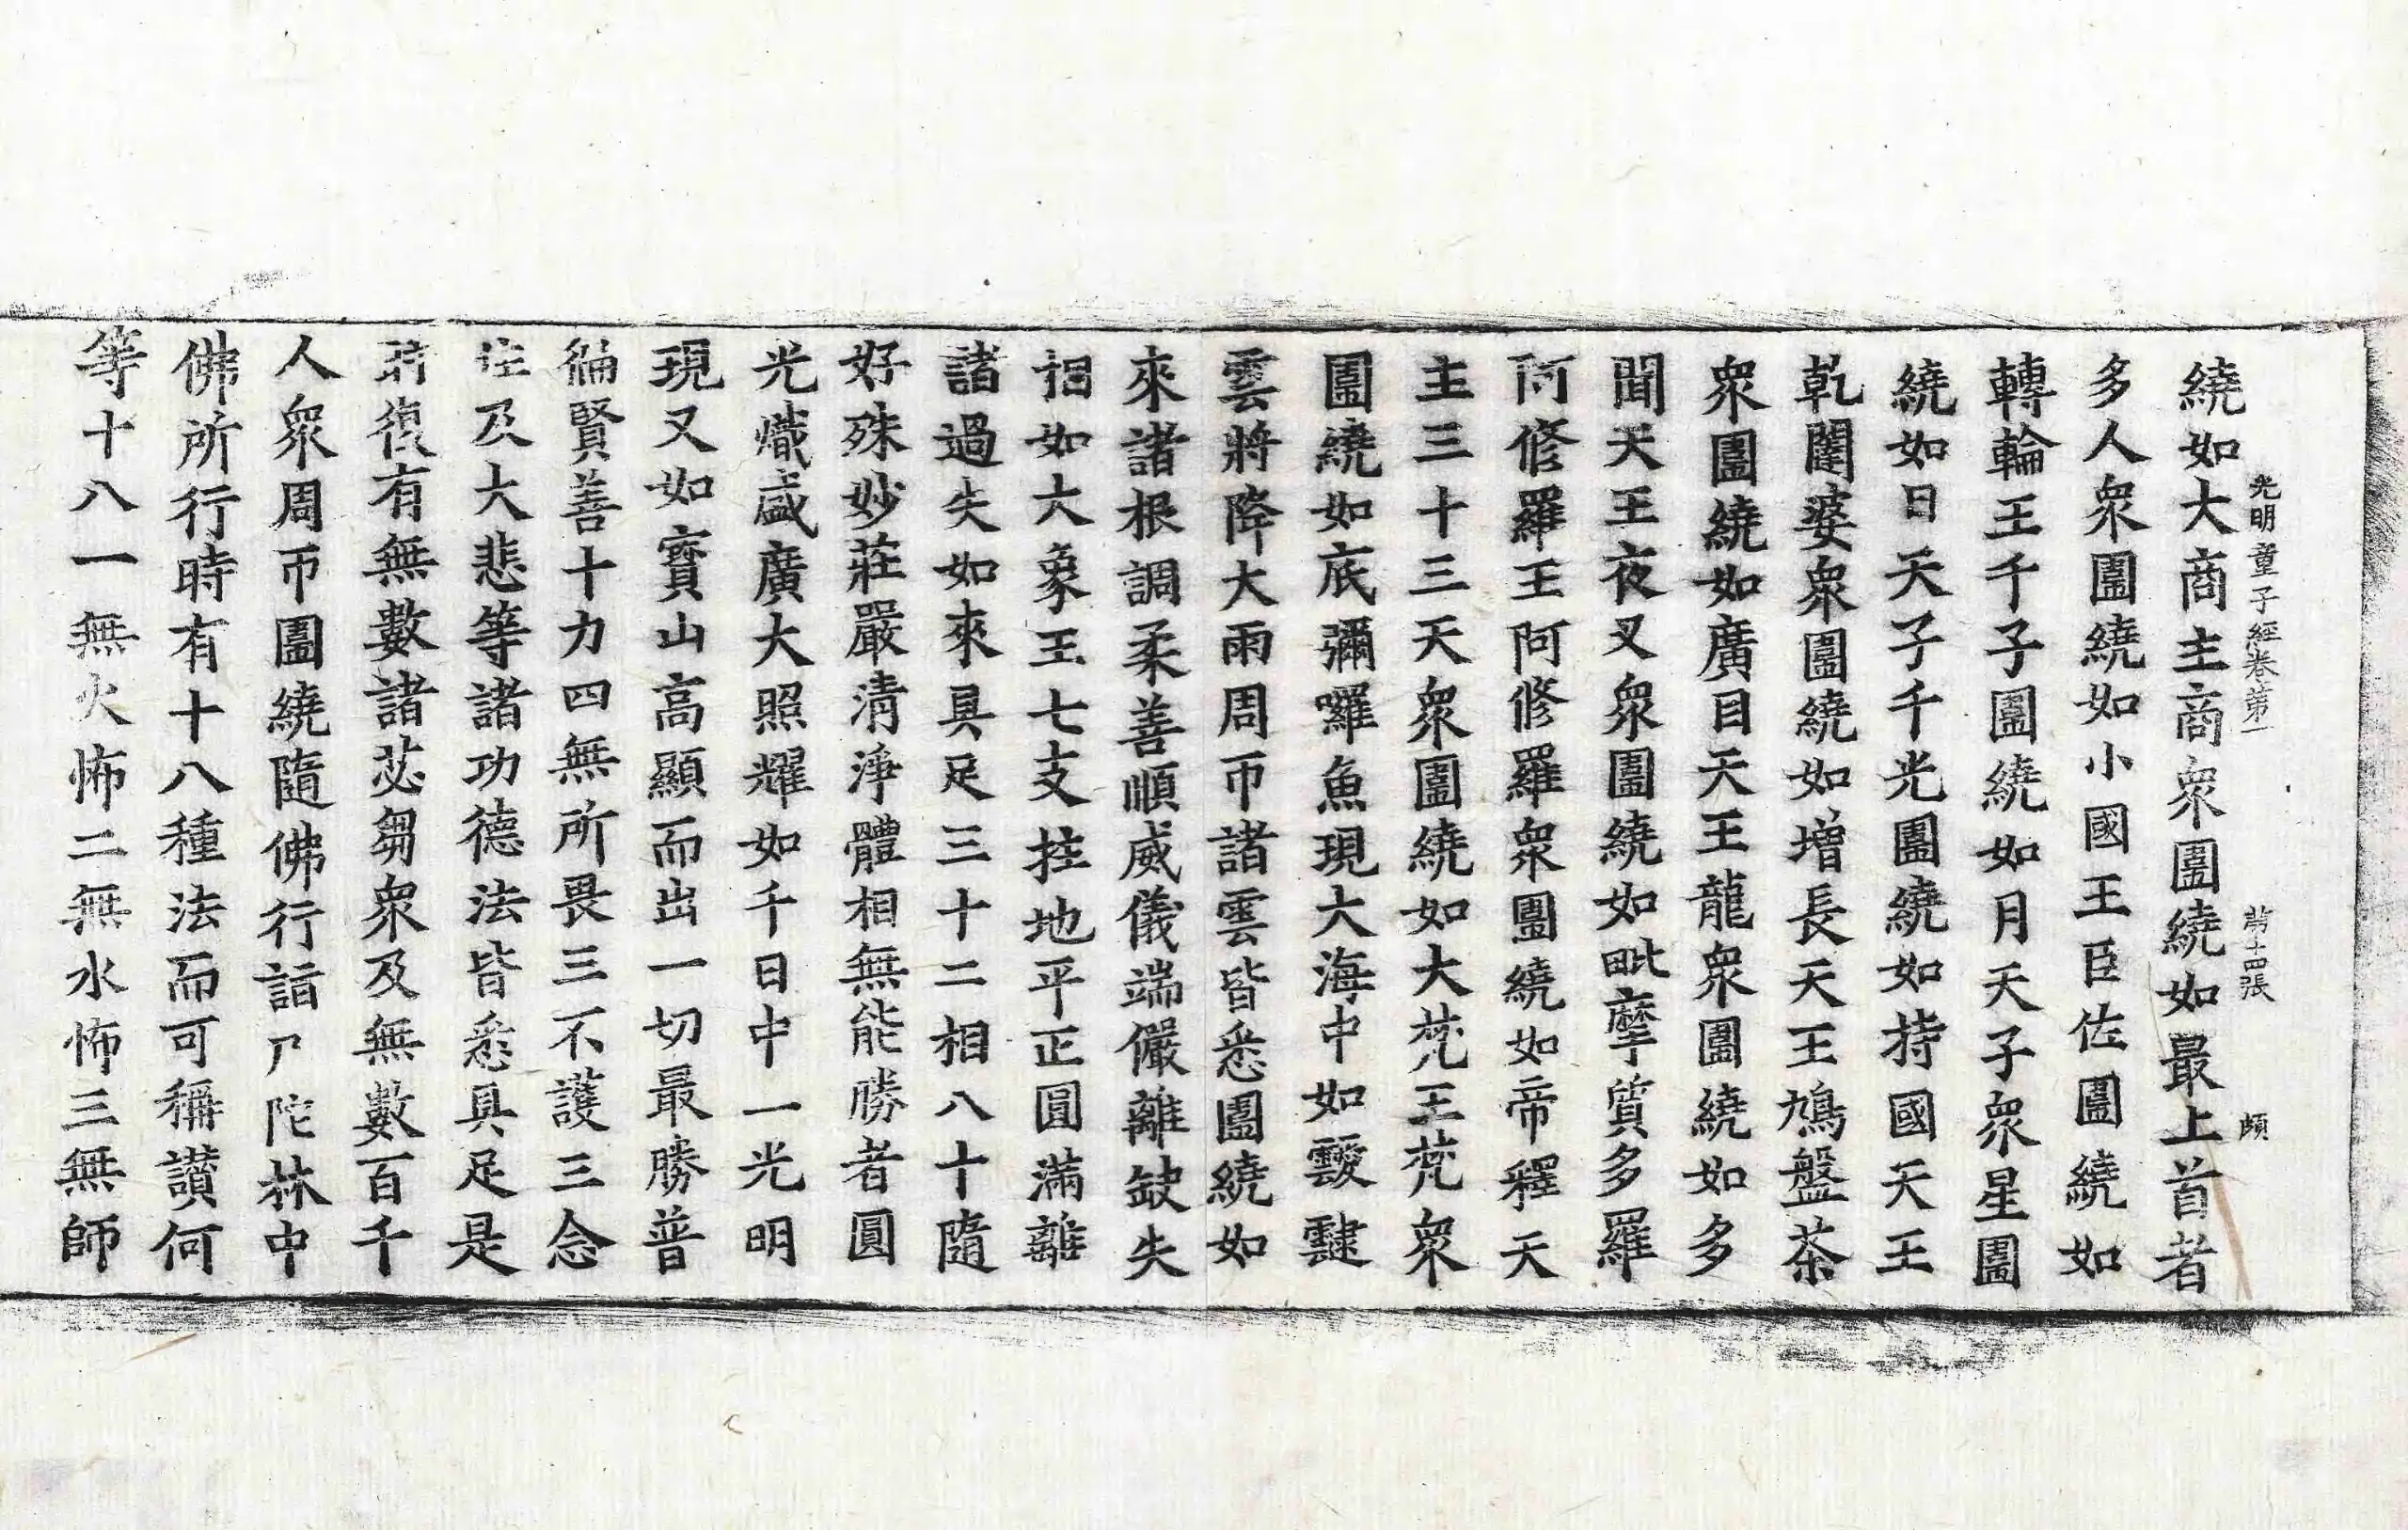 光明童子經卷第一 第十四張 頗
繞如大商主商衆圍繞如最上首者
多人衆圍繞如小國王臣佐圍繞如
轉輪王千子圍繞如月天子衆星圍
繞如日天子千光圍繞如持國天王
乾闥婆衆圍繞如增長天王鳩盤茶
衆圍繞如廣目天王龍衆圍繞如多
聞天王夜叉衆圍繞如毗摩質多羅
阿修羅王阿修羅衆圍繞如帝釋天
主三十三天衆圍繞如大梵王梵衆
圍繞如底彌囉魚現大海中如靉靆
雲將降大雨周帀諸雲皆悉圍繞如
來諸根調柔善順威儀端儼離缺失
相如大象王七支拄地平正圓滿離
諸過失如來具足三十二相八十隨
好殊妙莊嚴清淨體相無能勝者圓
光熾盛廣大照耀如千日中一光明
現又如寶山高顯而出一切最勝普
徧賢善十力四無所畏三不護三念
住及大悲等諸功德法皆悉具足是
時復有無數諸苾芻衆及無數百千
人衆周帀圍繞隨佛行詣尸陀林中
佛所行時有十八種法而可稱讚何
等十八一無火怖二無水怖三無師